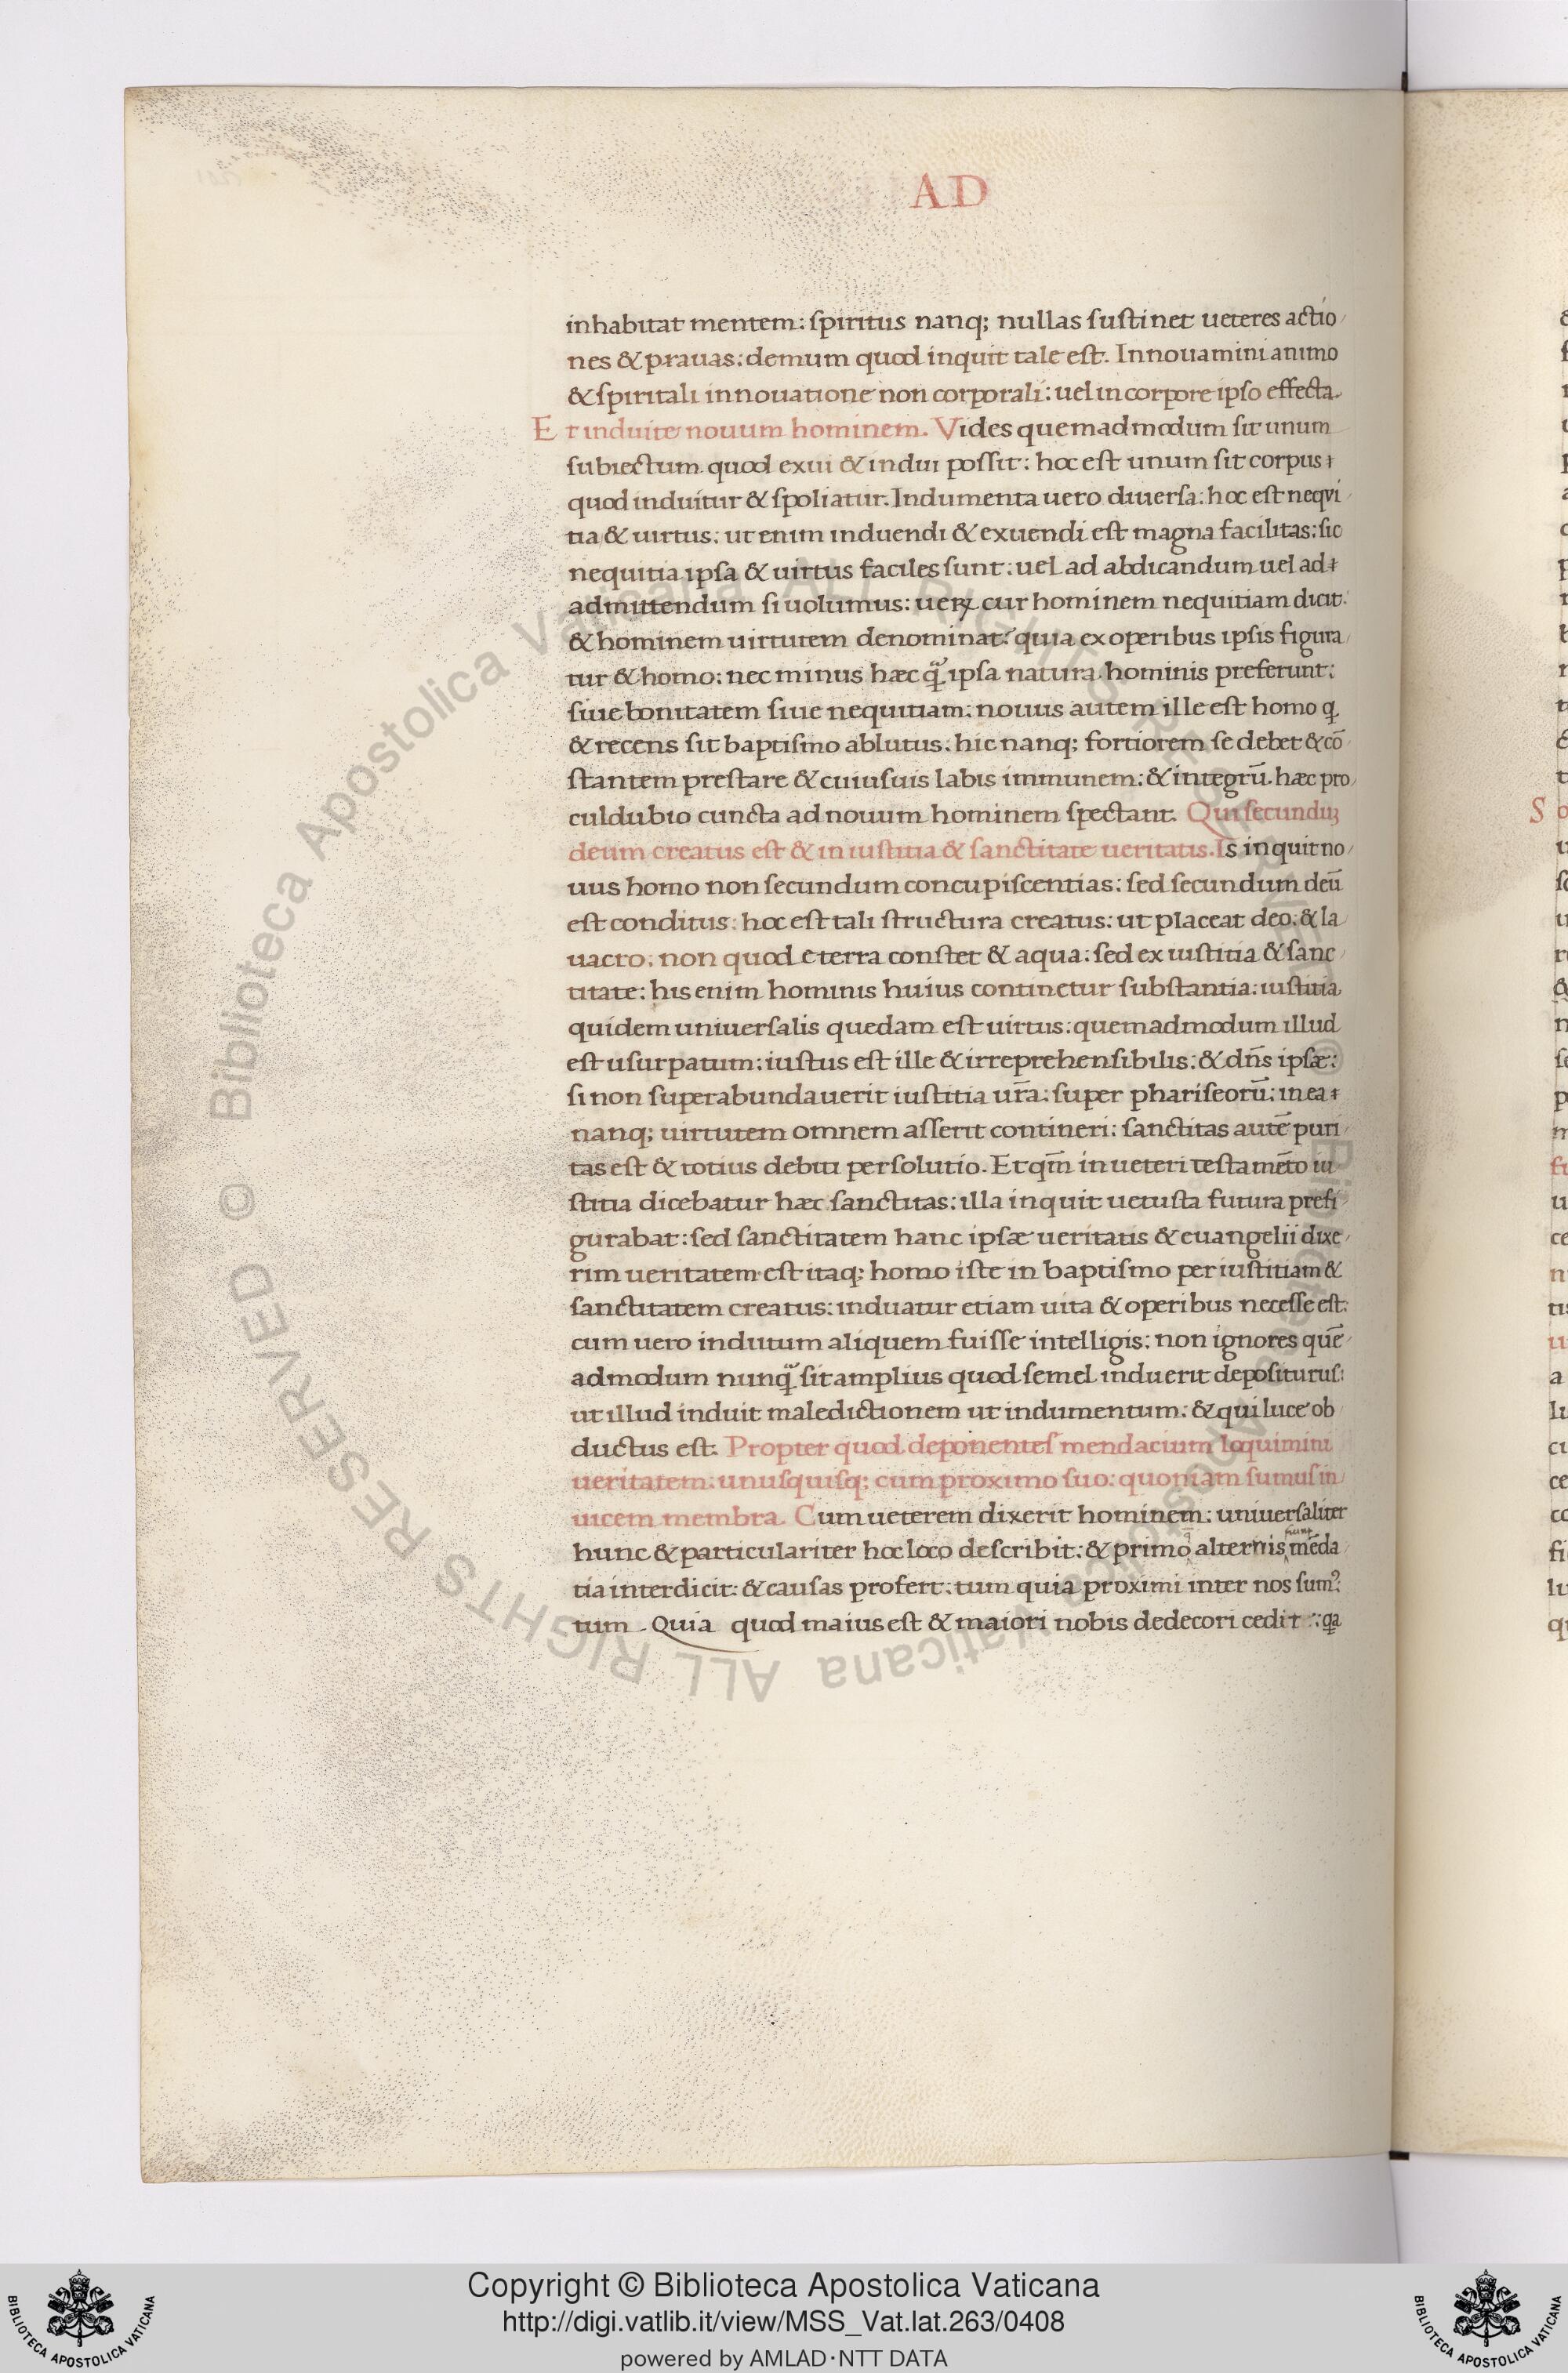 AD
inhabitat mentem: spiritus nanq; nullas sustinet ueteres actio
nes & prauas: demum quod inquit tale est. Innouamini animo
& spiritali innouatione non corporali: uel in corpore ipso effecta.
Et induite nouum hominem. Vides quemadmodum sit unum
subiectum quod exui & indui possit: hoc est unum sit corpus
quod induitur & spoliatur. Indumenta uero diuersa: hoc est neqvi
tia & uirtus: ut enim induendi & exuendi est magna facilitas: sic
nequitia ipsa & uirtus faciles sunt: uel ad abdicandum uel ad
admittendum si uolumus: ueꝝ cur hominem nequitiam dicit:
& hominem uirtutem denominat? quia ex operibus ipsis figura
tur & homo: nec minus hæc q̃ ipsa natura hominis preferunt:
siue bonitatem siue nequitiam: nouus autem ille est homo q
& recens sit baptismo ablutus: hic nanq; fortiorem se debet & cō
stantem prestare & cuiusuis labis immunem: & integrū. hæc pro
culdubio cuncta ad nouum hominem spectant. Qui secunduꝫ
deum creatus est & in iustitia & sanctitate ueritatis. Is inquit no
uus homo non secundum concupiscentias: sed secundum deū
est conditus: hoc est tali structura creatus: ut placeat deo: & la
uacro: non quod e terra constet & aqua: sed ex iustitia & sanc
titate: his enim hominis huius continetur substantia: iustitia
quidem uniuersalis quedam est uirtus: quemadmodum illud
est usurpatum: iustus est ille & irreprehensibilis: & dn̄s ipsæ:
si non superabundauerit iustitia ur̄a: super phariseorū: in ea
nanq; uirtutem omnem asserit contineri: sanctitas autē puri
tas est & totius debiti persolutio. Et qm̄ in ueteri testamēto iu
stitia dicebatur hæc sanctitas: illa inquit uetusta futura prefi
gurabat: sed sanctitatem hanc ipsæ ueritatis & euangelii dixe
rim ueritatem est itaq; homo iste in baptismo per iustitiam &
sanctitatem creatus: induatur etiam uita & operibus necesse est:
cum uero indutum aliquem fuisse intelligis: non ignores quē
admodum nunq̃ sit amplius quod semel induerit depositurus:
ut illud induit maledictionem ut indumentum: & qui luce ob
ductus est. Propter quod deponentes mendacium loquimini
ueritatem: unusquisq; cum proximo suo: quoniam sumus in
uicem membra. Cum ueterem dixerit hominem: uniuersaliter
hunc & particulariter hoc loco describit: & primo alternis mēda
tia interdicit: & causas profert: tum quia proximi inter nos sumꝰ:
tum Quia quod maius est & maiori nobis dedecori cedit
Copyright © Biblioteca Apostolica Vaticana
http://digi.vatlib.it/view/MSS_Vat.lat.263/0408
powered by AMLAD·NTT DATA
BIBLIOTECA APOSTOLICA VATICANA
BIBLIOTECA APOSTOLICA VATICANA
© Biblioteca Apostolica Vaticana ALL RIGHTS RESERVED © Biblioteca Apostolica Vaticana ALL RIGHTS RESERVED